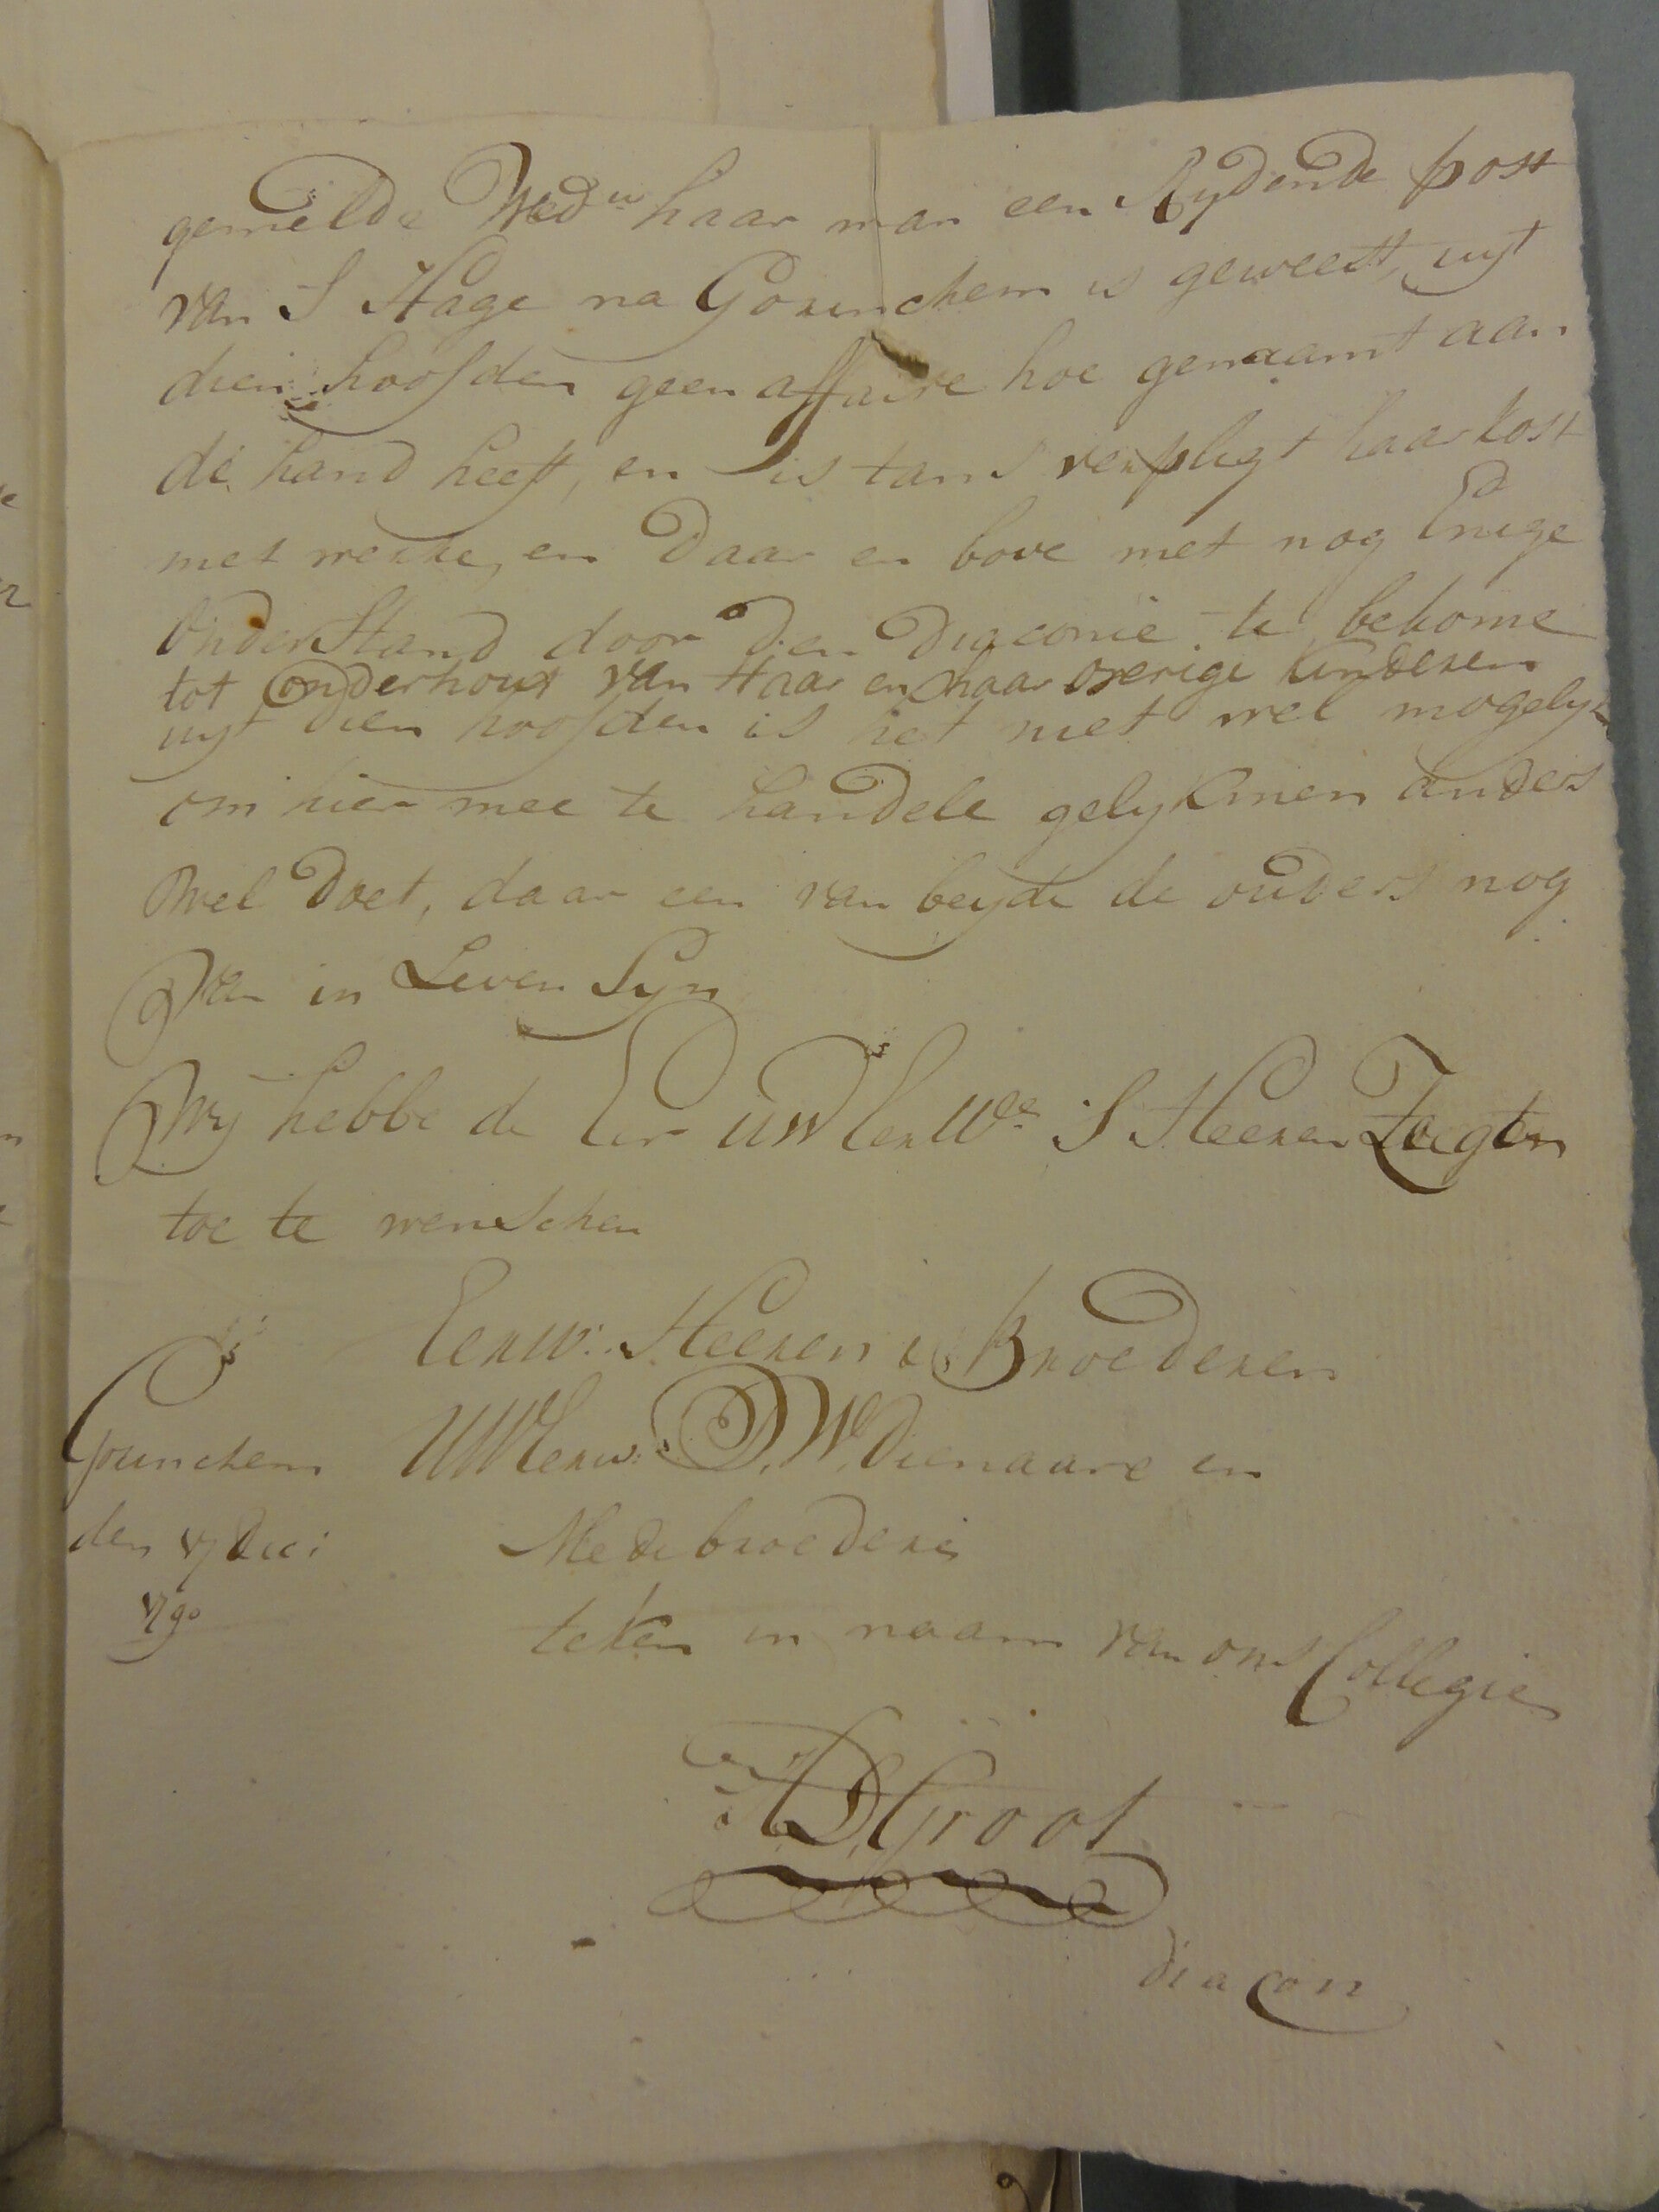 gemelde Wedw haar man een Rydende post
van S Hage na Gorinchem is geweest, uyt
dien hoofden geen affaire hoe genaamt aan
de hand heeft, en is tans verpligt haar kost
met werke, en Daar en bove met nog Enige
OnderStand door den Diaconie te bekome
tot onderhout van Haar en haar overige kinderen
uyt dien hoofden is het niet wel mogelyk
om hier mee te handele gelyk men anders
wel Doet, daar een van beyde de ouders nog
van in Leven Syn
Wy hebbe de Eer UW EerWe S Heeren Zegen
toe te wenschen
Eerw: Heeren & Broederen
UWEerw: D.W. Dienaare en
Gorinchem
den 17 Dec:
1790
Medebroeders
teken in naam van ons Collegie
A.D. Groot
diacon